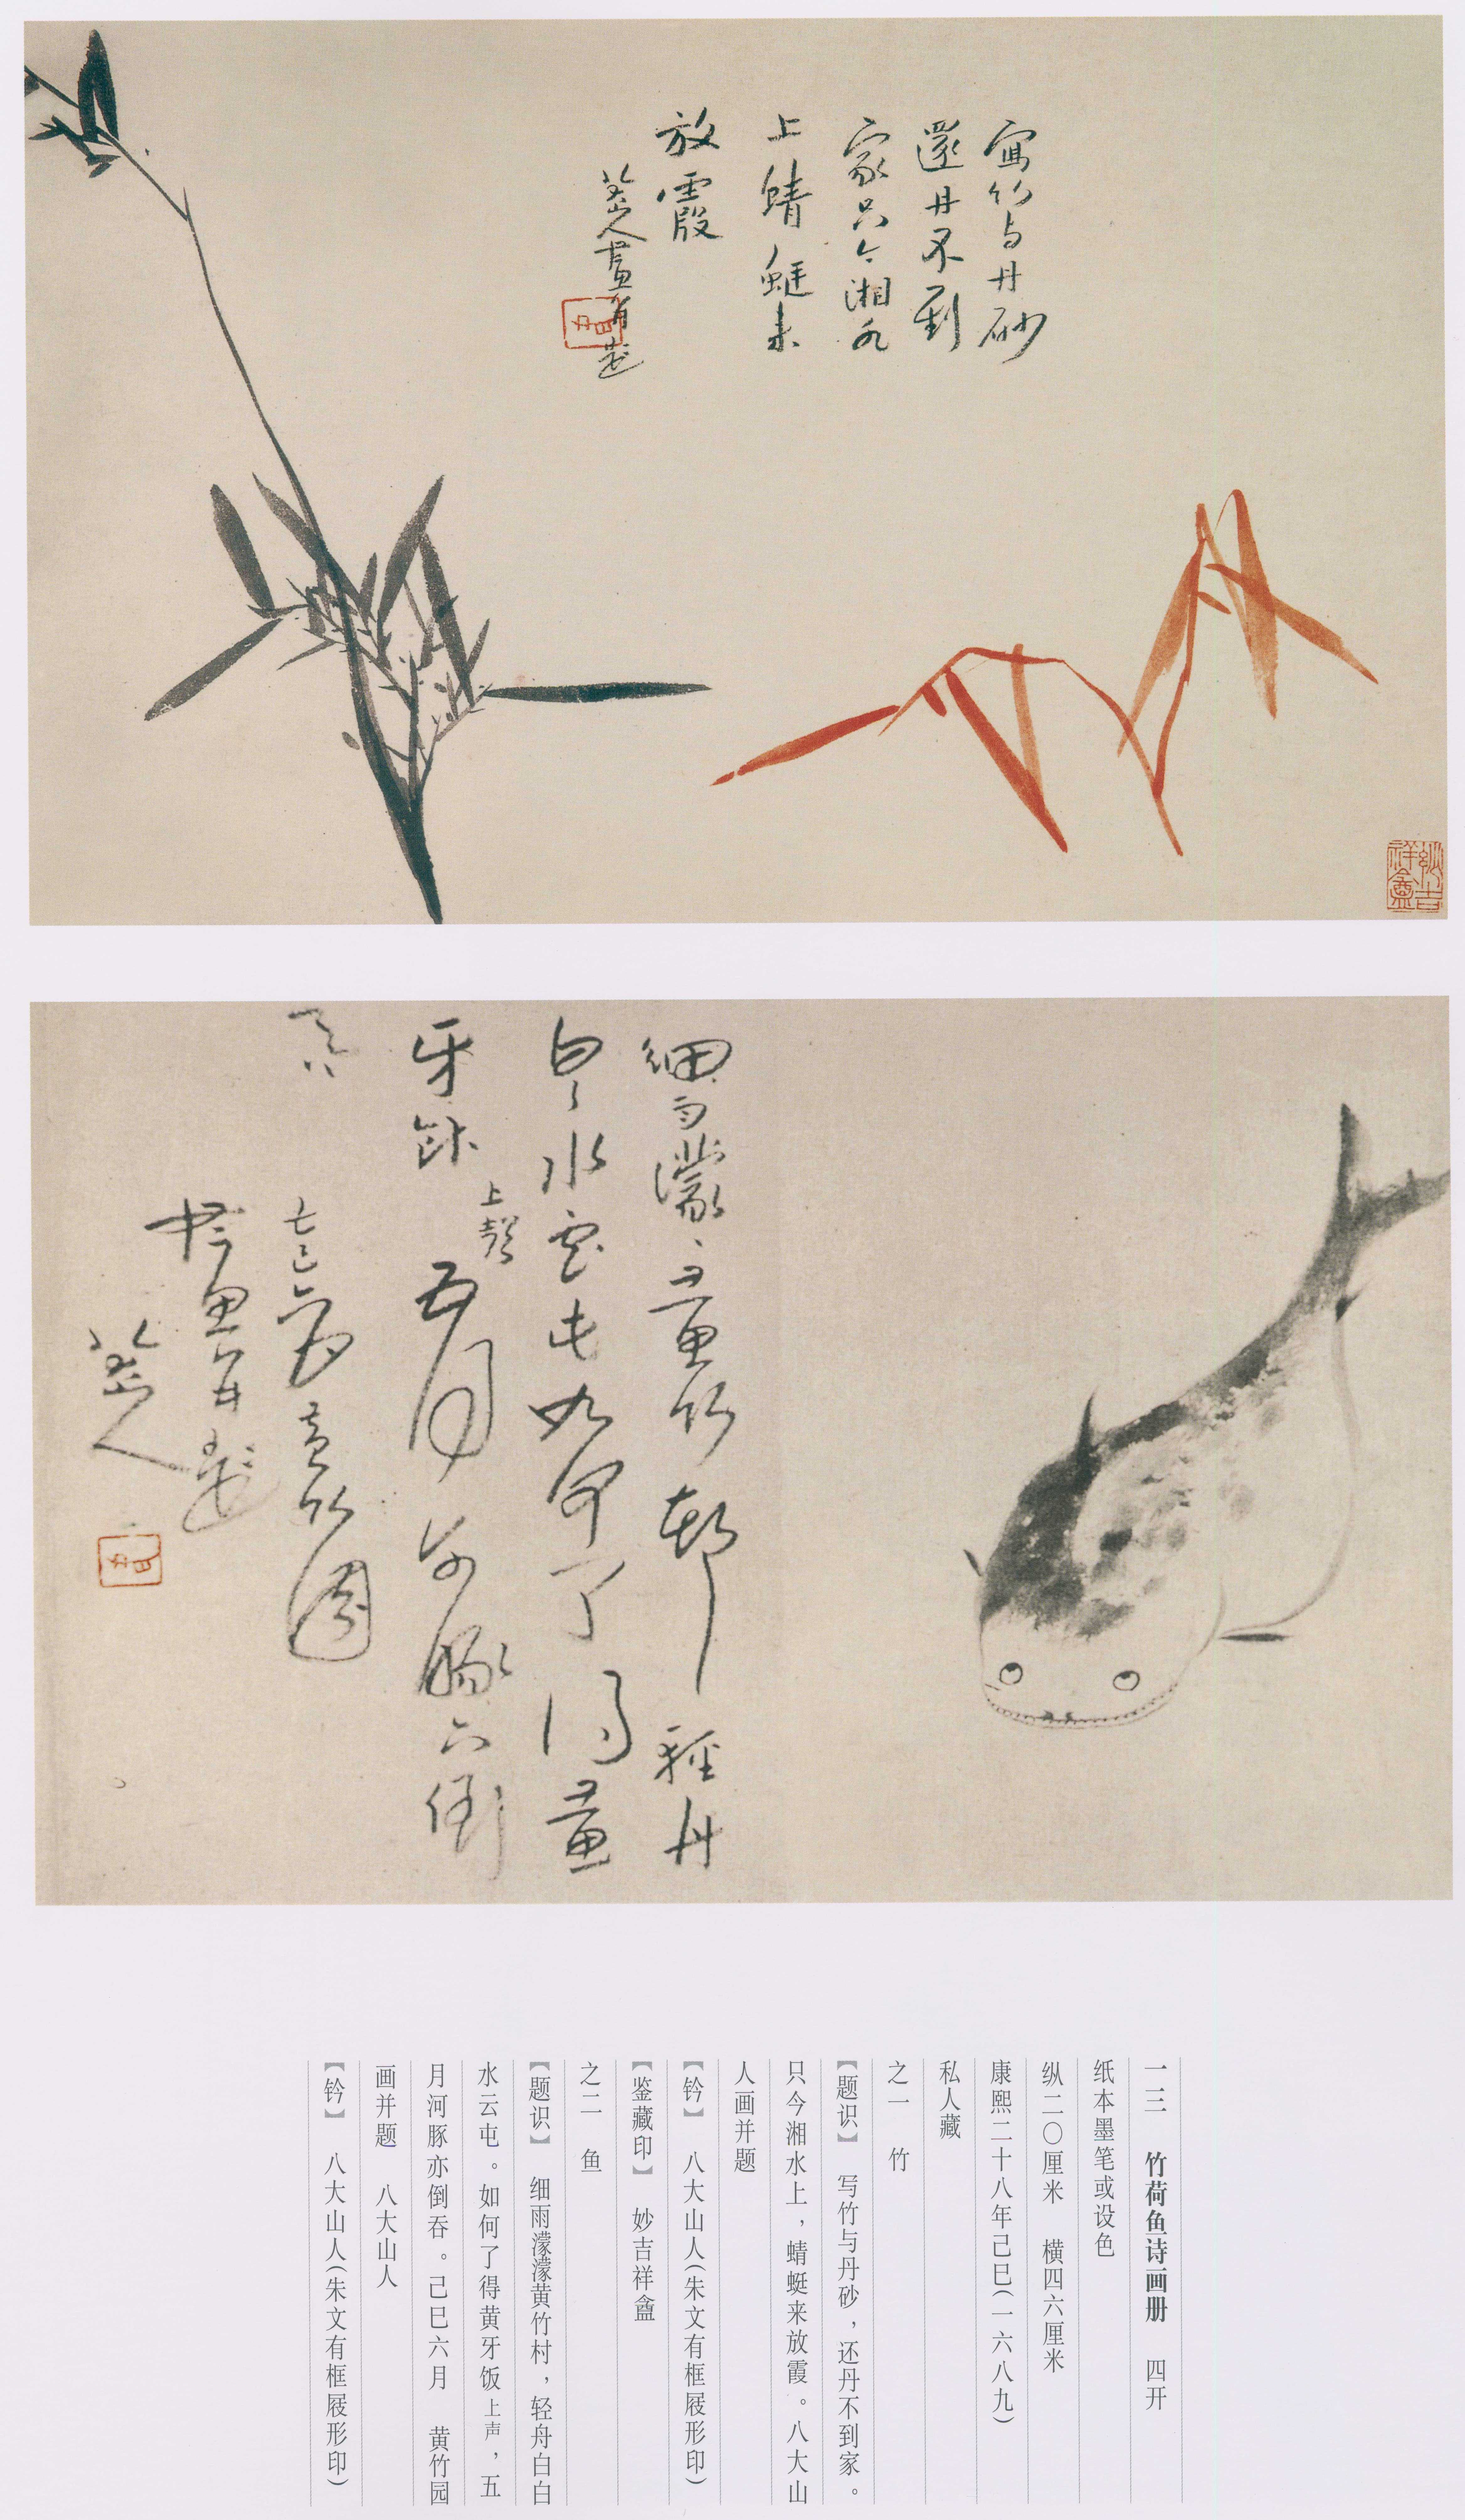 写竹与丹砂
還丹不到
家只今湘水
上蜻蜓未
放霞
八大山人畫并題
妙吉
祥盦
細雨濛濛黄竹邨輕舟
白白水雲屯如何了得黄
牙飰上聲五月河豚亦倒
吞
己巳六月黄竹園
畫并題
八大山人
一三 竹荷鱼诗画册 四开
纸本墨笔或设色
纵二〇厘米 横四六厘米
康熙二十八年己巳(一六八九)
私人藏
之一 竹
【题识】 写竹与丹砂,还丹不到家。
只今湘水上,蜻蜓来放霞。八大山
人画并题
【钤】 八大山人(朱文有框屐形印)
【鉴藏印】 妙吉祥盦
之二 鱼
【题识】 细雨濛濛黄竹村,轻舟白白
水云屯。如何了得黄牙饭上声,五
月河豚亦倒吞。己巳六月 黄竹园
画并题 八大山人
【钤】 八大山人(朱文有框屐形印)